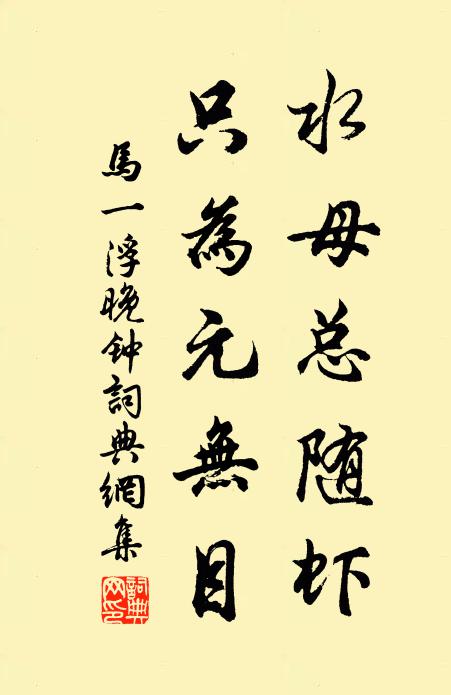 水母总随虾
只為元無目
馬一浮晚钟詞典網集
詞典網印